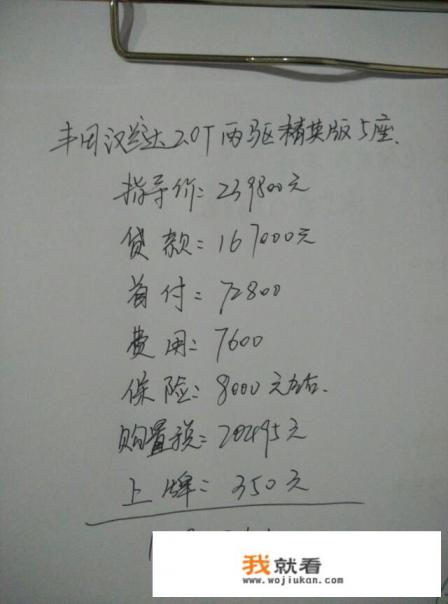 丰田汉兰达2.0T两驱精英版5座.
指导价:239800元
贷款:167000元
首付:72800
费用:7600
保险:8000元左右.
购置税=20495元
上牌:350元
我就看
www.wojiukan.com